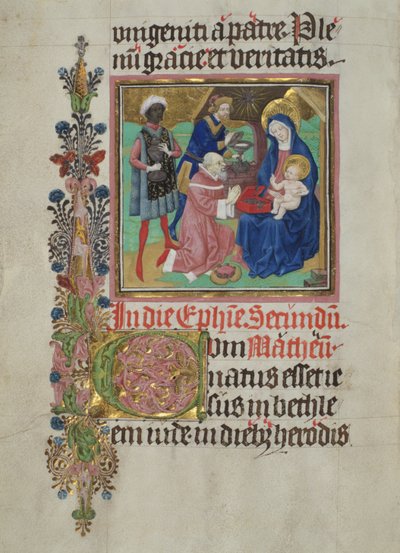 unigeniti a patre. Ple
nu᷑ gracie et veritatis.
In die Ephīe. Secundū.
Cum Matheū.
natus esset ie
sus in bethle
em iude. in dieb᷒ herodis.